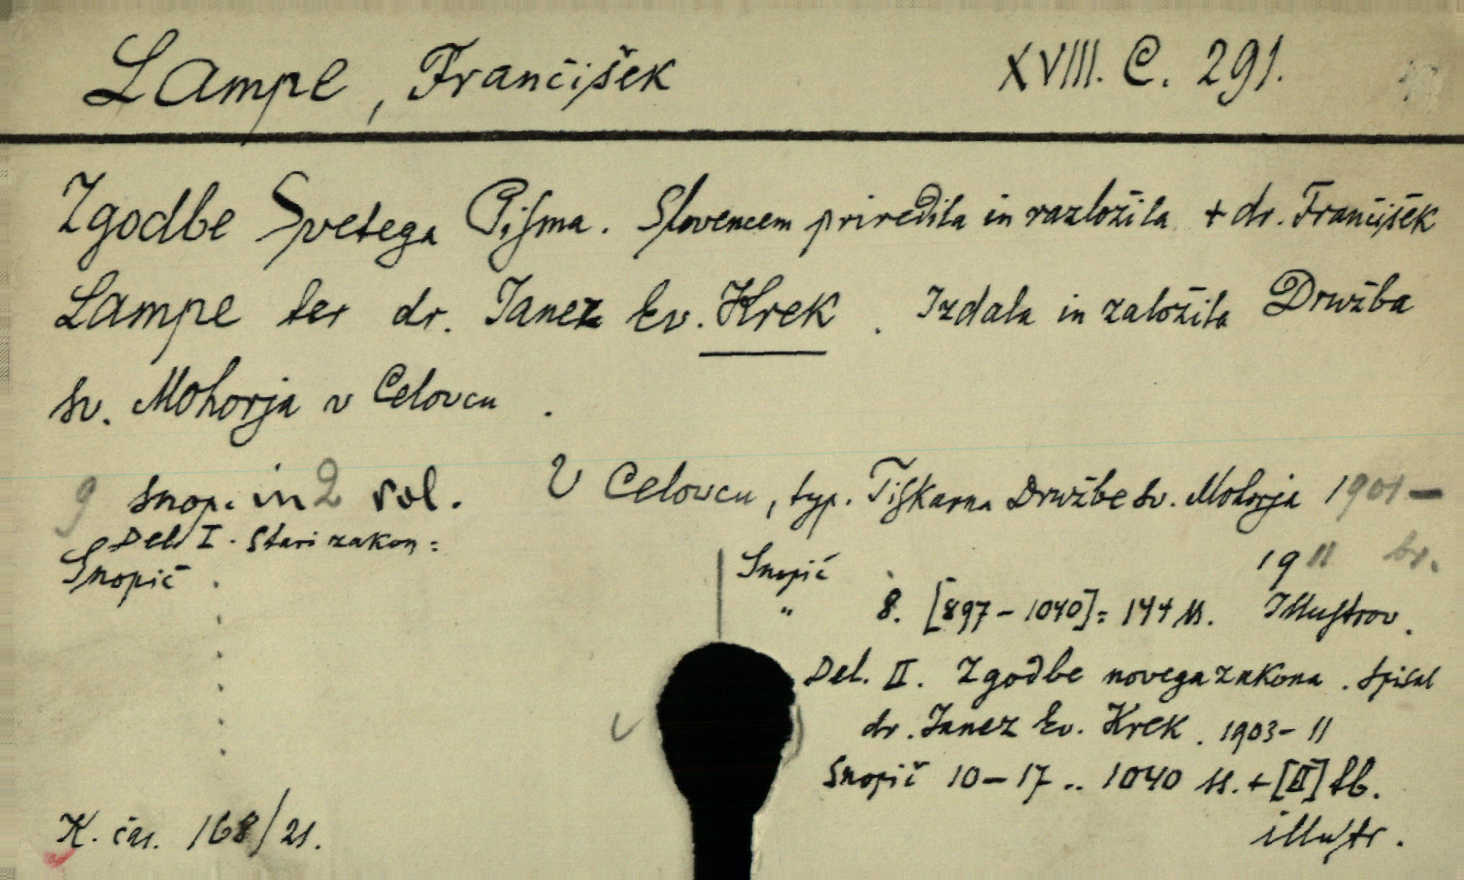 Lampe, Frančišek XVIII. C. 291.
Zgodbe Svetega Pisma. Slovencem priredila in razložila + dr. Frančišek
Lampe ter dr. Janez Ev. Krek. Izdala in založila Družba
sv. Mohorja v Celovcu.
9 snop. in 2 vol. V Celovcu, typ. Tiskarna Družbe sv. Mohorja 1901 –
Del I. Stari zakon: 1911 br.
Snopič . Snopič
" 8. [897 – 1040] = 144 ss. Illustrov.
Del. II. Zgodbe novega zakona. Spisal
dr. Janez Ev. Krek. 1903 – 11
Snopič 10 – 17 .. 1040 ss. + [II] fb.
K. čas. 168/21. illustr.